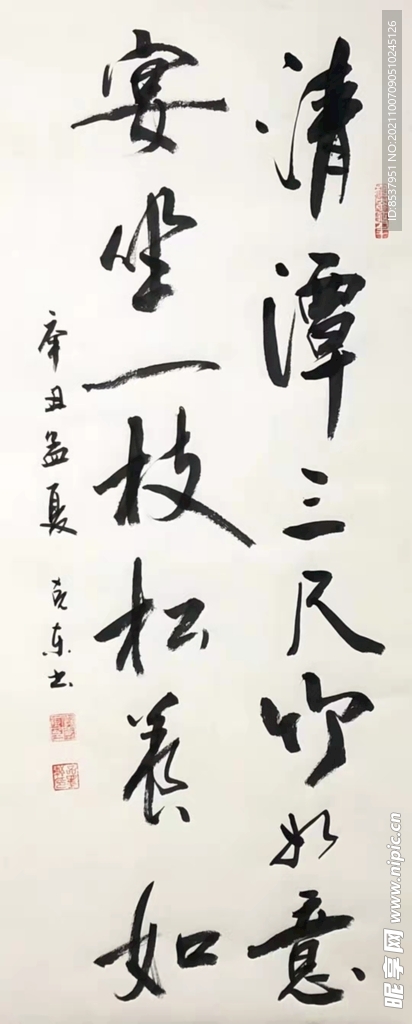 清潭三尺竹如意
宴坐一枝松养如
辛丑孟夏 克东书
ID:8537951 NO:20211007090510245126
昵享网 www.nipic.cn